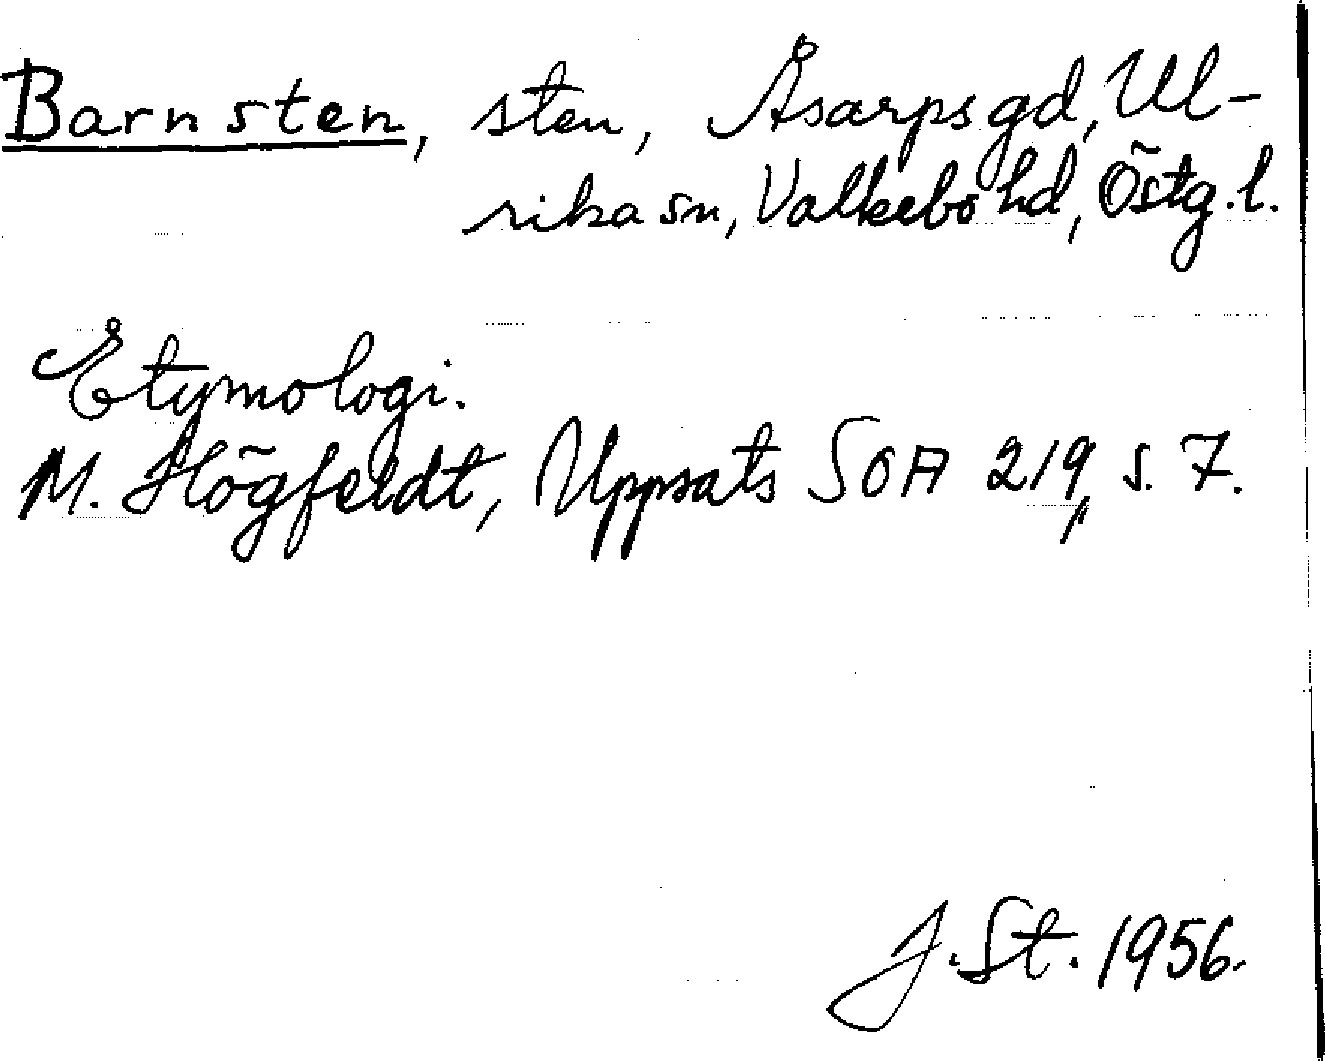 Barnsten, sten, Åsarps gd, Ul-
rika sn, Valkebo hd, Östg. l.
Etymologi.
M. Högfeldt, Uppsats SOA 219, s. 7.
J. St. 1956.